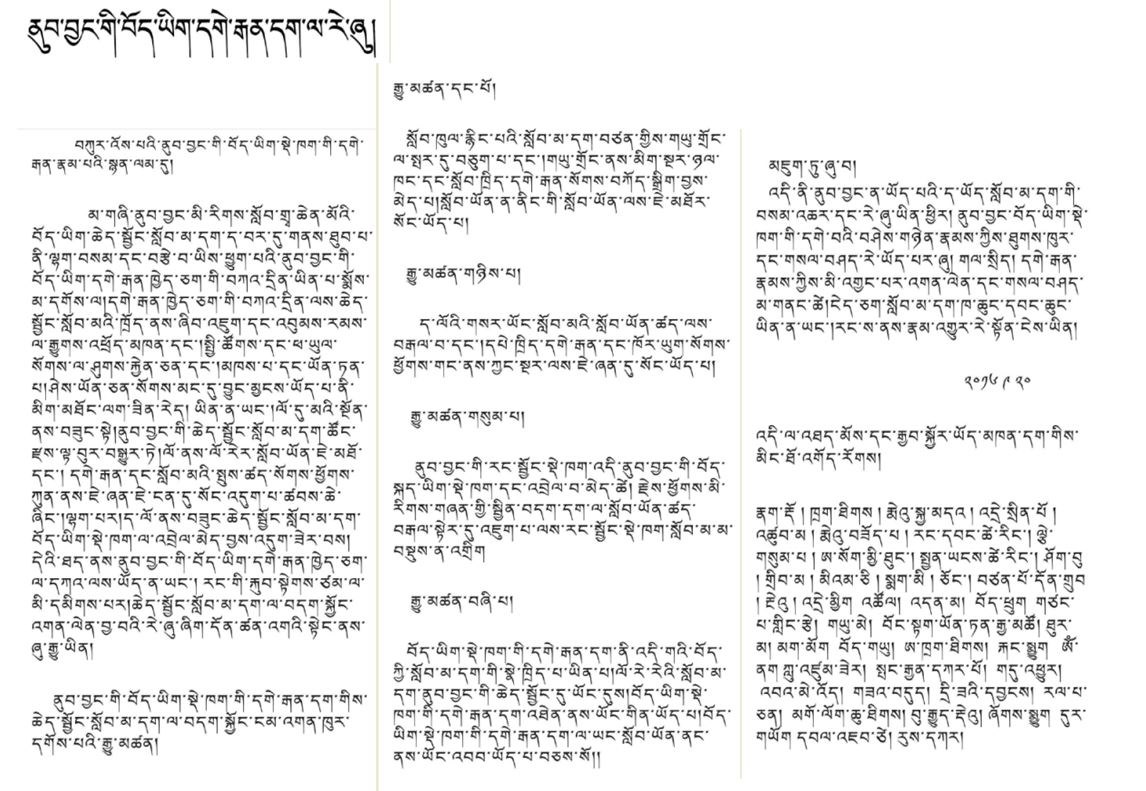 ནུབ་བྱང་གི་བོད་ཡིག་དགེ་རྒན་དག་ལ་རེ་ཞུ།
བཀུར་འོས་པའི་ནུབ་བྱང་གི་བོད་ཡིག་སྡེ་ཁག་གི་དགེ་
རྒན་རྣམ་པའི་སྙན་ལམ་དུ།
མ་གཞི་ནུབ་བྱང་མི་རིགས་སློབ་གྲྭ་ཆེན་མོའི་
བོད་ཡིག་ཆེད་སྦྱོང་སློབ་མ་དག་ད་བར་དུ་གནས་ཐུབ་པ་
ནི་ལྷག་བསམ་དང་བརྩེ་བ་ཡིས་ཕྱུག་པའི་ནུབ་བྱང་གི་
བོད་ཡིག་དགེ་རྒན་ཁྱེད་ཅག་གི་བཀའ་དྲིན་ཡིན་པ་སྨོས་
མ་དགོས་ལ།དགེ་རྒན་ཁྱེད་ཅག་གི་བཀའ་དྲིན་ལས་ཆེད་
སྦྱོང་སློབ་མའི་ཁྲོད་ནས་ཞིབ་འཇུག་དང་འབུམས་རམས་
ལ་རྒྱུགས་འཕྲོད་མཁན་དང་།སྤྱི་ཚོགས་དང་ཕ་ཡུལ་
སོགས་ལ་ཤུགས་རྐྱེན་ཅན་དང་།མཁས་པ་དང་ཡོན་ཏན་
པ།ཤེས་ཡོན་ཅན་སོགས་མང་དུ་བྱུང་མྱངས་ཡོད་པ་ནི་
མིག་མཐོང་ལག་ཟིན་རེད། ཡིན་ན་ཡང་།ལོ་དུ་མའི་སྔོན་
ནས་བཟུང་སྟེ།ནུབ་བྱང་གི་ཆེད་སྦྱོང་སློབ་མ་དག་ཚོང་
རྫས་ལྟ་བུར་བསྒྱུར་ཏེ།ལོ་ནས་ལོ་རེར་སློབ་ཡོན་ཇེ་མཐོ་
དང་། དགེ་རྒན་དང་སློབ་མའི་སྤུས་ཚད་སོགས་ཕྱོགས་
ཀུན་ནས་ཇེ་ཞན་ཇེ་ངན་དུ་སོང་འདུག་པ་ཚབས་ཆེ་
ཞིང་།ལྷག་པར།ད་ལོ་ནས་བཟུང་ཆེད་སྦྱོང་སློབ་མ་དག་
བོད་ཡིག་སྡེ་ཁག་ལ་འབྲེལ་མེད་བྱས་འདུག་ཟེར་བས།
དེའི་ཐད་ནས་ནུབ་བྱང་གི་བོད་ཡིག་དགེ་རྒན་ཁྱེད་ཅག་
ལ་དཀའ་ལས་ཡོད་ན་ཡང་། རང་གི་རྐུབ་སྟེགས་ཙམ་ལ་
མི་དམིགས་པར།ཆེད་སྦྱོང་སློབ་མ་དག་ལ་བདག་སྐྱོང་
འགན་ལེན་བྱ་བའི་རེ་ཞུ་ཞིག་དོན་ཚན་འགའི་སྟེང་ནས་
ཞུ་རྒྱུ་ཡིན།
ནུབ་བྱང་གི་བོད་ཡིག་སྡེ་ཁག་གི་དགེ་རྒན་དག་གིས་
ཆེད་སྦྱོང་སློབ་མ་དག་ལ་བདག་སྐྱོང་ངམ་འགན་ཁུར་
དགོས་པའི་རྒྱུ་མཚན།
རྒྱུ་མཚན་དང་པོ།
སློབ་ཁུལ་རྙིང་པའི་སློབ་མ་དག་བཙན་གྱིས་གཡུ་གྲོང་
ལ་སྤར་དུ་བཅུག་པ་དང་།གཡུ་གྲོང་ནས་མིག་སྔར་ཉལ་
ཁང་དང་སློབ་ཁྲིད་དགེ་རྒན་སོགས་བཀོད་སྒྲིག་བྱས་
མེད་པ།སློབ་ཡོན་ན་ནིང་གི་སློབ་ཡོན་ལས་ཇེ་མཐོར་
སོང་ཡོད་པ།
རྒྱུ་མཚན་གཉིས་པ།
ད་ལོའི་གསར་ཡོང་སློབ་མའི་སློབ་ཡོན་ཚད་ལས་
བརྒལ་བ་དང་།དཔེ་ཁྲིད་དགེ་རྒན་དང་ཁོར་ཡུག་སོགས་
ཕྱོགས་གང་ནས་ཀྱང་སྔར་ལས་ཇེ་ཞན་དུ་སོང་ཡོད་པ།
རྒྱུ་མཚན་གསུམ་པ།
ནུབ་བྱང་གི་རང་སྦྱོང་སྡེ་ཁག་འདི་ནུབ་བྱང་གི་བོད་
སྐད་ཡིག་སྡེ་ཁག་དང་འབྲེལ་བ་མེད་ཚེ། རྗེས་ཕྱོགས་མི་
རིགས་གཞན་གྱི་སྦྱིན་བདག་དག་ལ་སློབ་ཡོན་ཚད་
བརྒལ་སྟེར་དུ་འཇུག་པ་ལས་རང་སྦྱོང་སྡེ་ཁག་སློབ་མ་མ་
བསྡུས་ན་འགྲིག
རྒྱུ་མཚན་བཞི་པ།
བོད་ཡིག་སྡེ་ཁག་གི་དགེ་རྒན་དག་ནི་འདི་གའི་བོད་
ཀྱི་སློབ་མ་དག་གི་སྣེ་ཁྲིད་པ་ཡིན་པ།ལོ་རེ་རེའི་སློབ་མ་
དག་ནུབ་བྱང་གི་ཆེད་སྦྱོང་དུ་ཡོང་དུས།བོད་ཡིག་སྡེ་
ཁག་གི་དགེ་རྒན་དག་འཐེན་ནས་ཡོང་གིན་ཡོད་པ།བོད་
ཡིག་སྡེ་ཁག་གི་དགེ་རྒན་དག་ལ་ཡང་སློབ་ཡོན་ནང་
ནས་ཡོང་འབབ་ཡོད་པ་བཅས་སོ།།
མཇུག་ཏུ་ཞུ་བ།
འདི་ནི་ནུབ་བྱང་ན་ཡོད་པའི་ད་ཡོད་སློབ་མ་དག་གི་
བསམ་འཆར་དང་རེ་ཞུ་ཡིན་ཕྱིར། ནུབ་བྱང་བོད་ཡིག་སྡེ་
ཁག་གི་དགེ་བའི་བཤེས་གཉེན་རྣམས་ཀྱིས་ཐུགས་ཁུར་
དང་གསལ་བཤད་རེ་ཡོད་པར་ཞུ། གལ་སྲིད། དགེ་རྒན་
རྣམས་ཀྱིས་མི་འགྱང་པར་འགན་ལེན་དང་གསལ་བཤད་
མ་གནང་ཚེ།ངེད་ཅག་སློབ་མ་དག་ཁ་ཆུང་དབང་ཆུང་
ཡིན་ན་ཡང་།རང་ས་ནས་རྣམ་འགྱུར་རེ་སྟོན་ངེས་ཡིན།
༢༠༡༦ ༩ ༢༠
འདི་ལ་འཐད་མོས་དང་རྒྱབ་སྐྱོར་ཡོད་མཁན་དག་གིས་
མིང་ཐོ་འགོད་རོགས།
ནག་རྡོ། ཁྲག་ཐིགས། རྨེའུ་སྐྱ་མདའ། འདྲེ་སྲིན་པོ།
འཚུབ་མ། རྨེའུ་བཟོད་པ། རང་དབང་ཚེ་རིང་། ལྕེ་
གསུམ་པ། ཨ་སོག་མྱི་ཐུང་། སྤྱན་ཡངས་ཚེ་རིང་། ཤོག་བུ
། གྲིབ་མ། མིའམ་ཅི། སྨག་མི། ཙོང་། བཙན་པོ་དོན་གྲུབ
། རྫེའུ། འདྲེ་མྱིག འཚོལ། འདན་མ། བོད་ཕྲུག གཙང་
པ་གླིང་རྩེ། གཡུ་མེ། བོང་སྟག་ཡོན་ཏན་རྒྱ་མཚོ། ཐུར་
མ། མག་མོག བོད་གཡུ། ཨ་ཁྲག་ཐིགས། རྐང་སྨྱུག ཨོཾ་
ནག ཀླུ་འཛུམ་ཟེར། སྤང་རྒྱན་དཀར་པོ། གདུ་འཕྱུར།
འབའ་མེ་འོད། གཟའ་བདུད། དྲི་ཟའི་དབྱངས། རལ་པ་
ཅན། མགོ་ལོག་ཆུ་ཐིགས། བུ་རྒྱུད་རྡེའུ། ཞོགས་སྨྱུག དུར་
གཡོག དབལ་འཛབ་ཙེ། རུས་དཀར།